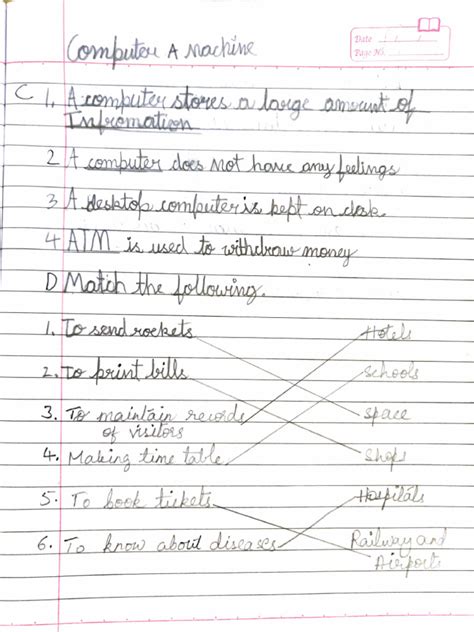 Date / /
Page No.
Computer A Machine
C 1. A computer stores a large amount of
Infromation
2 A computer does Not have any feelings
3 A desktop computer is kept on desk
4 ATM is used to withdraw money
D Match the following.
1. To send rockets Hotels
2. To print bills Schools
3. To maintain records Space
of visitors
4. Making time table Shops
5. To book tickets Hospitals
6. To know about diseases Railway and
Airports